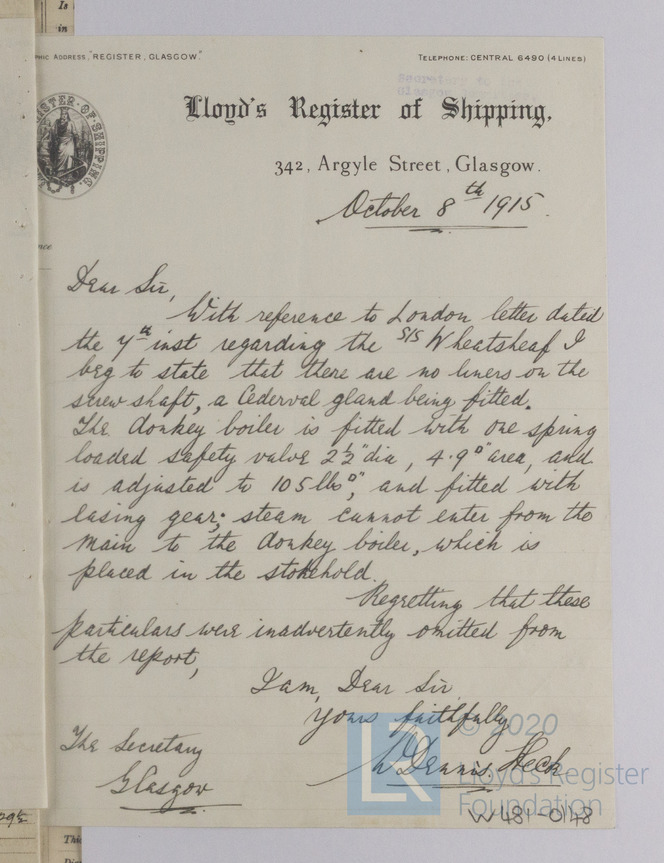 Is
in
PHIC ADDRESS, "REGISTER, GLASGOW."
TELEPHONE: CENTRAL 6490 (4 LINES)
Secretary to the
Glasgow
Lloyd's Register of Shipping,
REGISTER·OF·SHIPPING.
342, Argyle Street, Glasgow.
October 8th 1915.
Dear Sir,
With reference to London letter dated
the 7th inst regarding the S/S Wheatsheaf I
beg to state that there are no liners on the
screw shaft, a Cederval gland being fitted.
The donkey boiler is fitted with one spring
loaded safety valve 2½" dia, 4.9□" area, and
is adjusted to 105 lbs□", and fitted with
easing gear; steam cannot enter from the
main to the donkey boiler, which is
placed in the stokehold.
Regretting that these
particulars were inadvertently omitted from
the report,
I am, Dear Sir
Yours faithfully
Dennis Heck
The Secretary
Glasgow
© 2020
LR
Lloyd's Register
Foundation
W481-0148